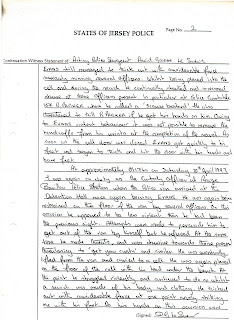 Page No. 2
STATES OF JERSEY POLICE
Continuation Witness Statement of Acting Police Sergeant David
Evans still managed to kick out with considerable force
narrowly missing several officers. Whilst being placed into the
cell and during the search he continually shouted and screamed
abuse at those officers present in particular at Police Constable
who he called a
threatened to kill if he got his hands on him. Owing
to Evans violent behaviour it was not possible to remove the
handcuffs from his wrists at the completion of the search. As
soon as the cell door was closed Evans got quickly to his
feet and began to kick and hit the door with his hands and
bare feet.
At approximately hrs on Saturday 1987
I was again on duty as the Custody Officer at
Police Station when the Police Van arrived at the
Detention Area once again bearing Evans. He was again
restrained on the floor of the van by several officers. On this
occasion he appeared to be less violent than he had been
the previous night. Attempts were made to persuade him to
get out of the van by himself but he refused. At the same
time he made threats and was abusive towards those present
threatening to "get you cunts" and similar. He was eventually
lifted from the van and carried to a cell. He was placed
on the floor of the cell with his head under the bench. At
this point he struggled violently and continued to do so whilst
a search was made of his body and clothing. He kicked
out with considerable force at one point nearly striking
me with his foot. As his hands on this occasion were
(Signed)